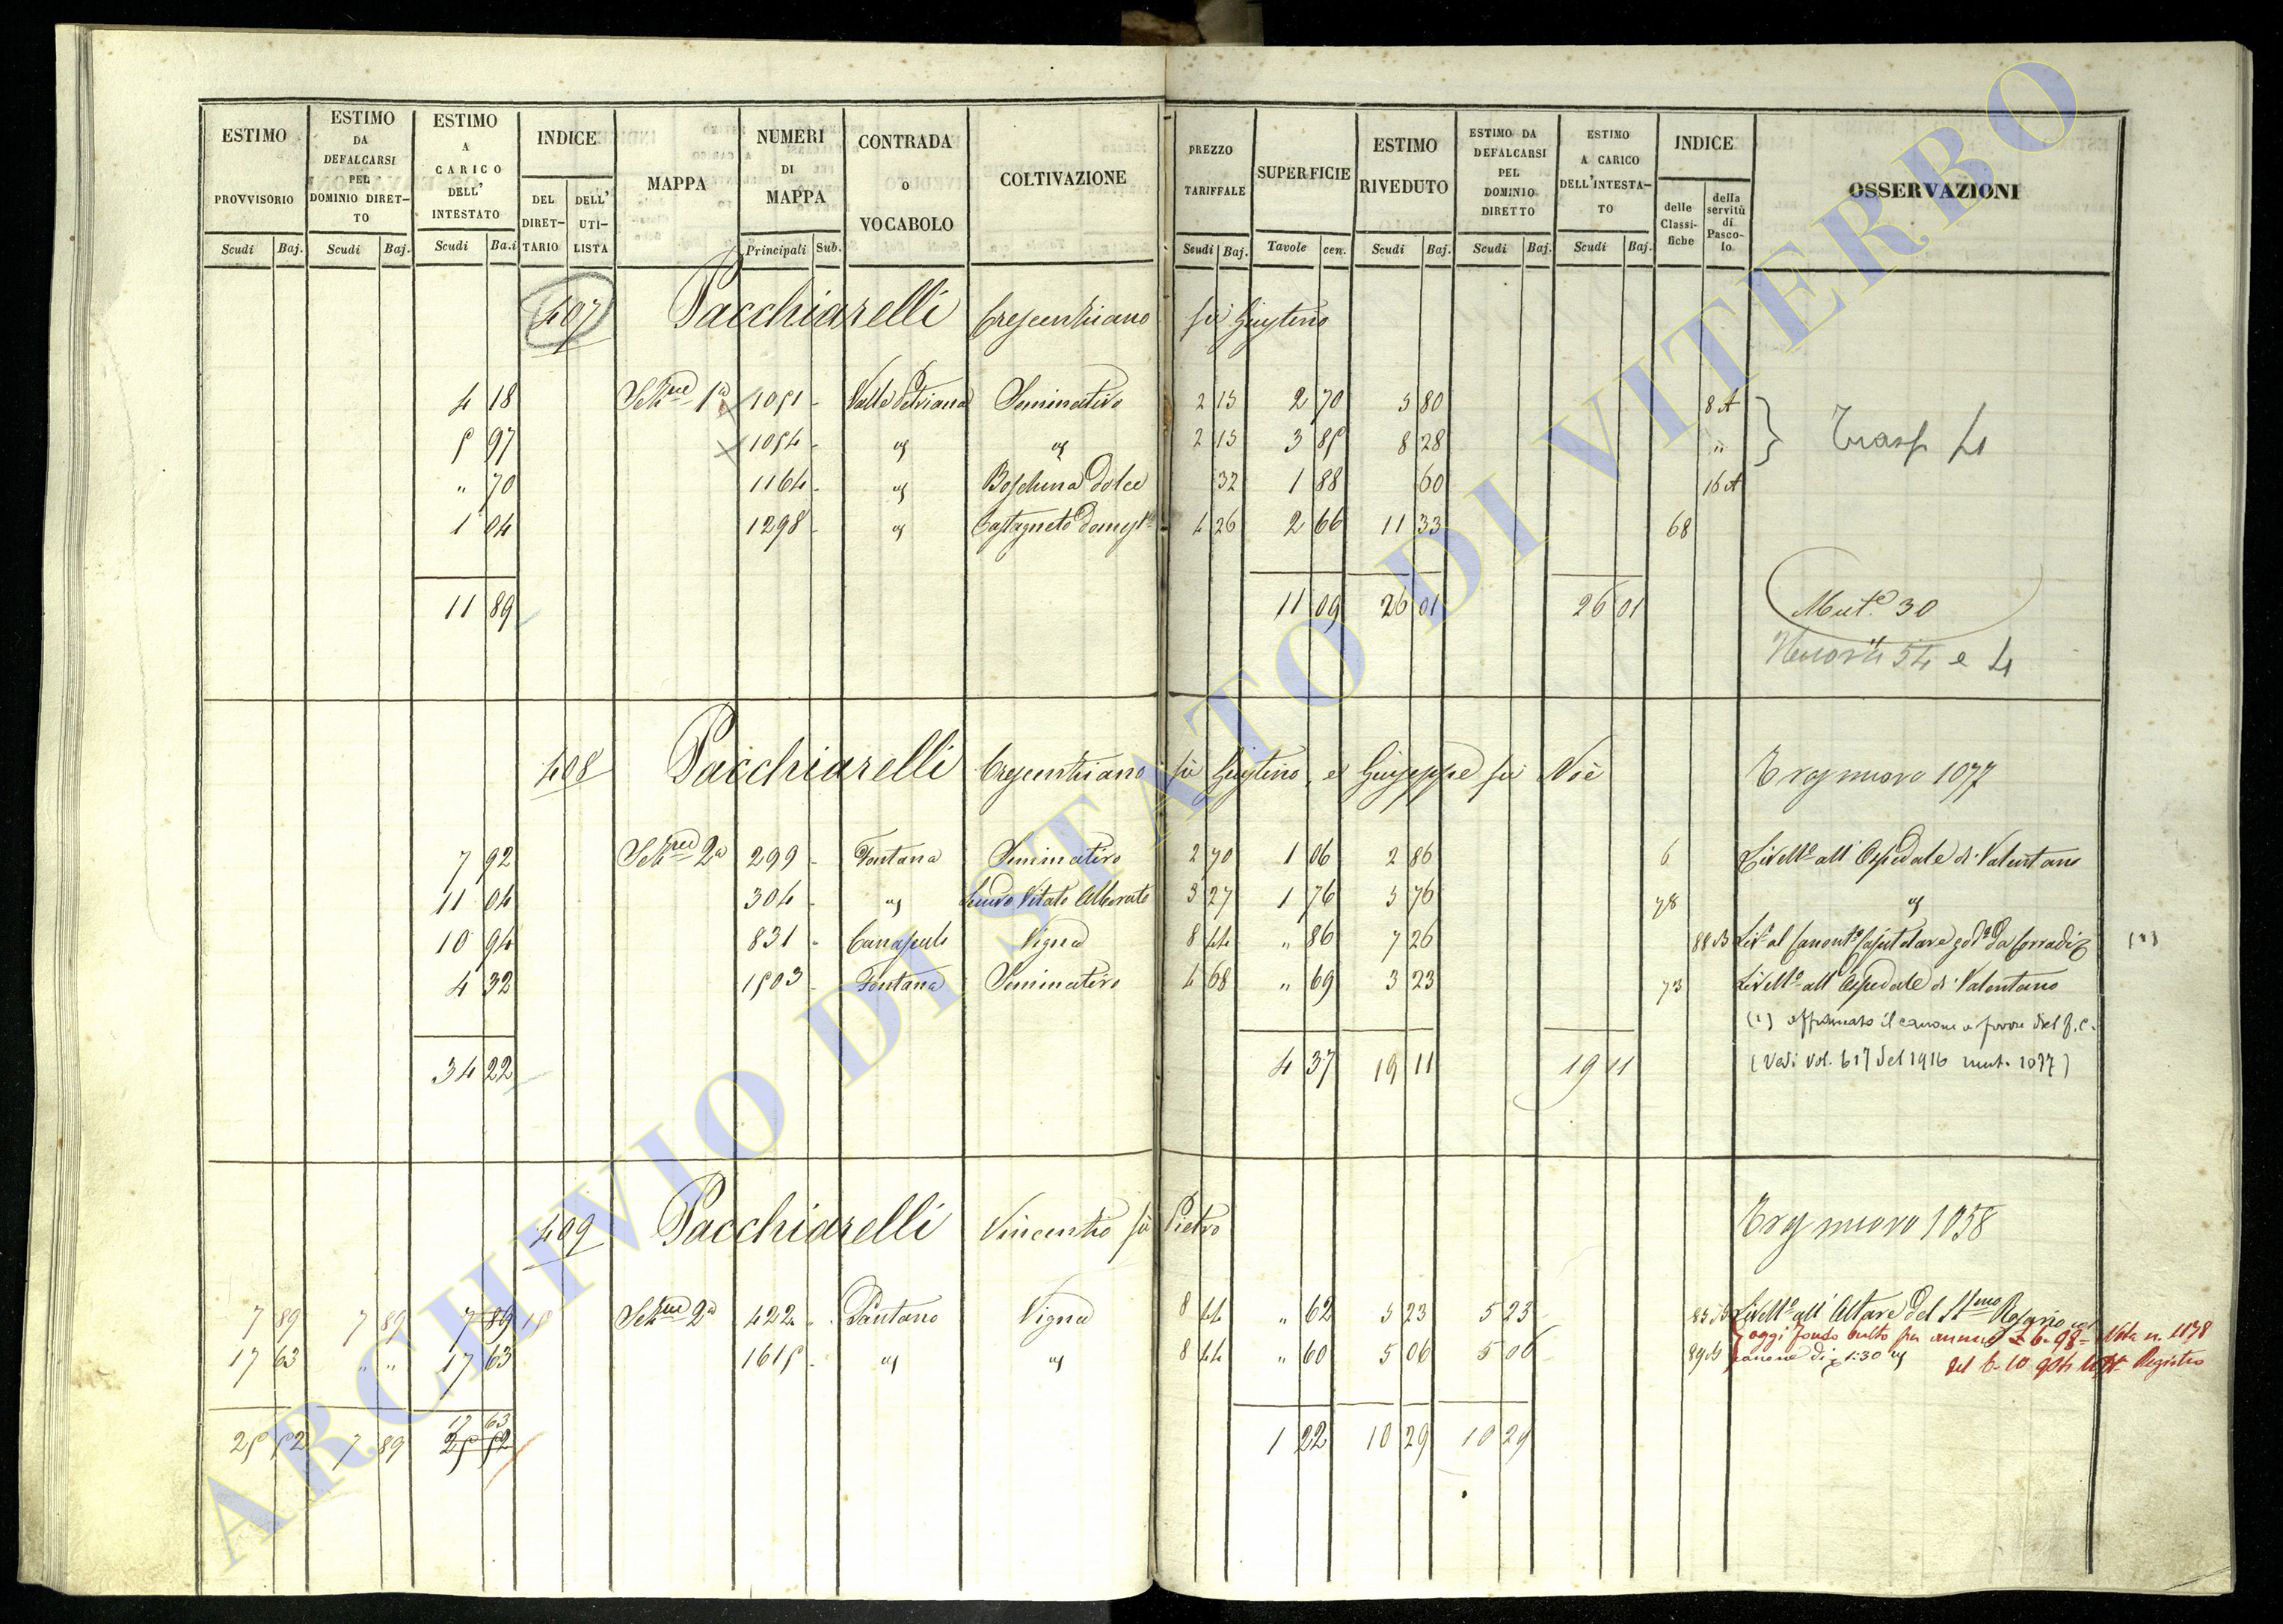 ESTIMO PROVVISORIO Scudi Baj.
ESTIMO DA DEFALCARSI PEL DOMINIO DIRETTO Scudi Baj.
ESTIMO A CARICO DELL' INTESTATO Scudi Ba.i
INDICE DEL DIRETTARIO DELL' UTILISTA
MAPPA
NUMERI DI MAPPA Principali Sub.
CONTRADA O VOCABOLO
COLTIVAZIONE
PREZZO TARIFFALE Scudi Baj.
SUPERFICIE Tavole cen.
ESTIMO RIVEDUTO Scudi Baj.
ESTIMO DA DEFALCARSI PEL DOMINIO DIRETTO Scudi Baj.
ESTIMO A CARICO DELL'INTESTATO Scudi Baj.
INDICE delle Classifiche della servitù di Pascolo
OSSERVAZIONI
407 Pacchiarelli Crescentiano fù Giustino
4 18 Sez.ne 1a 1051 - Valle Petriana Seminativo 2 15 2 70 5 80 8 A
5 97 1054 - " " 2 15 3 85 8 28 " Trasf 4
" 70 1164 - " Boschina dolce 32 1 88 60 16 A
1 04 1298 - " Castagneto domest.o 4 26 2 66 11 33 68
11 89 11 09 26 01 26 01 Mut.e 30
54 e 4
408 Pacchiarelli Crescentiano fù Giustino, e Giuseppe fù Noè Tras nuovo 1077
7 92 Sez.ne 2a 299 - Fontana Seminativo 2 70 1 06 2 86 6 Livell.o all' Ospedale di Valentano
11 04 304 - " Semivo Vitato Alberato 3 27 1 76 5 76 78 "
10 94 831 - Canapule Vigna 8 44 " 86 7 26 88 B (1)
4 32 1503 - Fontana Seminativo 4 68 " 69 3 23 73 Livell.o all' Ospedale di Valentano
(1) affrancato il canone a favore del F. C.
34 22 4 37 19 11 19 11 (Vedi vol. 617 del 1916 mut. 1077)
409 Pacchiarelli Vincentio fù Pietro Tras nuovo 1058
7 89 7 89 7 89 18 Sez.ne 2a 422 - Pantano Vigna 8 44 " 62 5 23 5 23 85 B Livell.o all' Altare del SS.mo Rosario
17 63 " " 17 63 1615 - " " 8 44 " 60 5 06 5 06 89 B canone di 1:30
oggi fondo per annue £ 6.98 = Nota n. 1178
del 6-10 904 Registro
17 63
25 52 7 89 25 52 1 22 10 29 10 29
ARCHIVIO DI STATO DI VITERBO